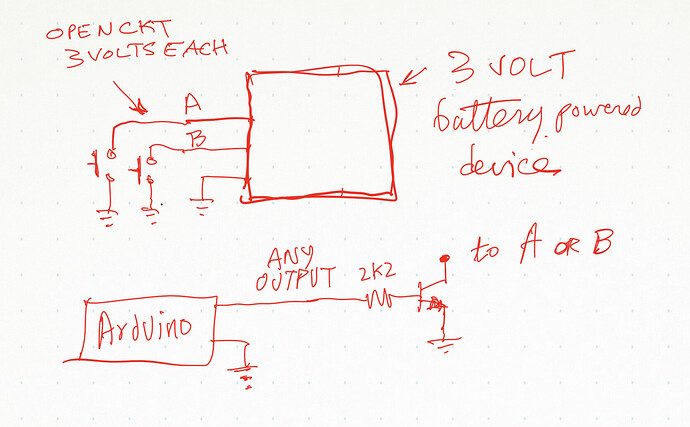 OPEN CKT
3 VOLTS EACH
A
B
3 VOLT
battery powered
device
to A OR B
ANY
OUTPUT
2K2
Arduino